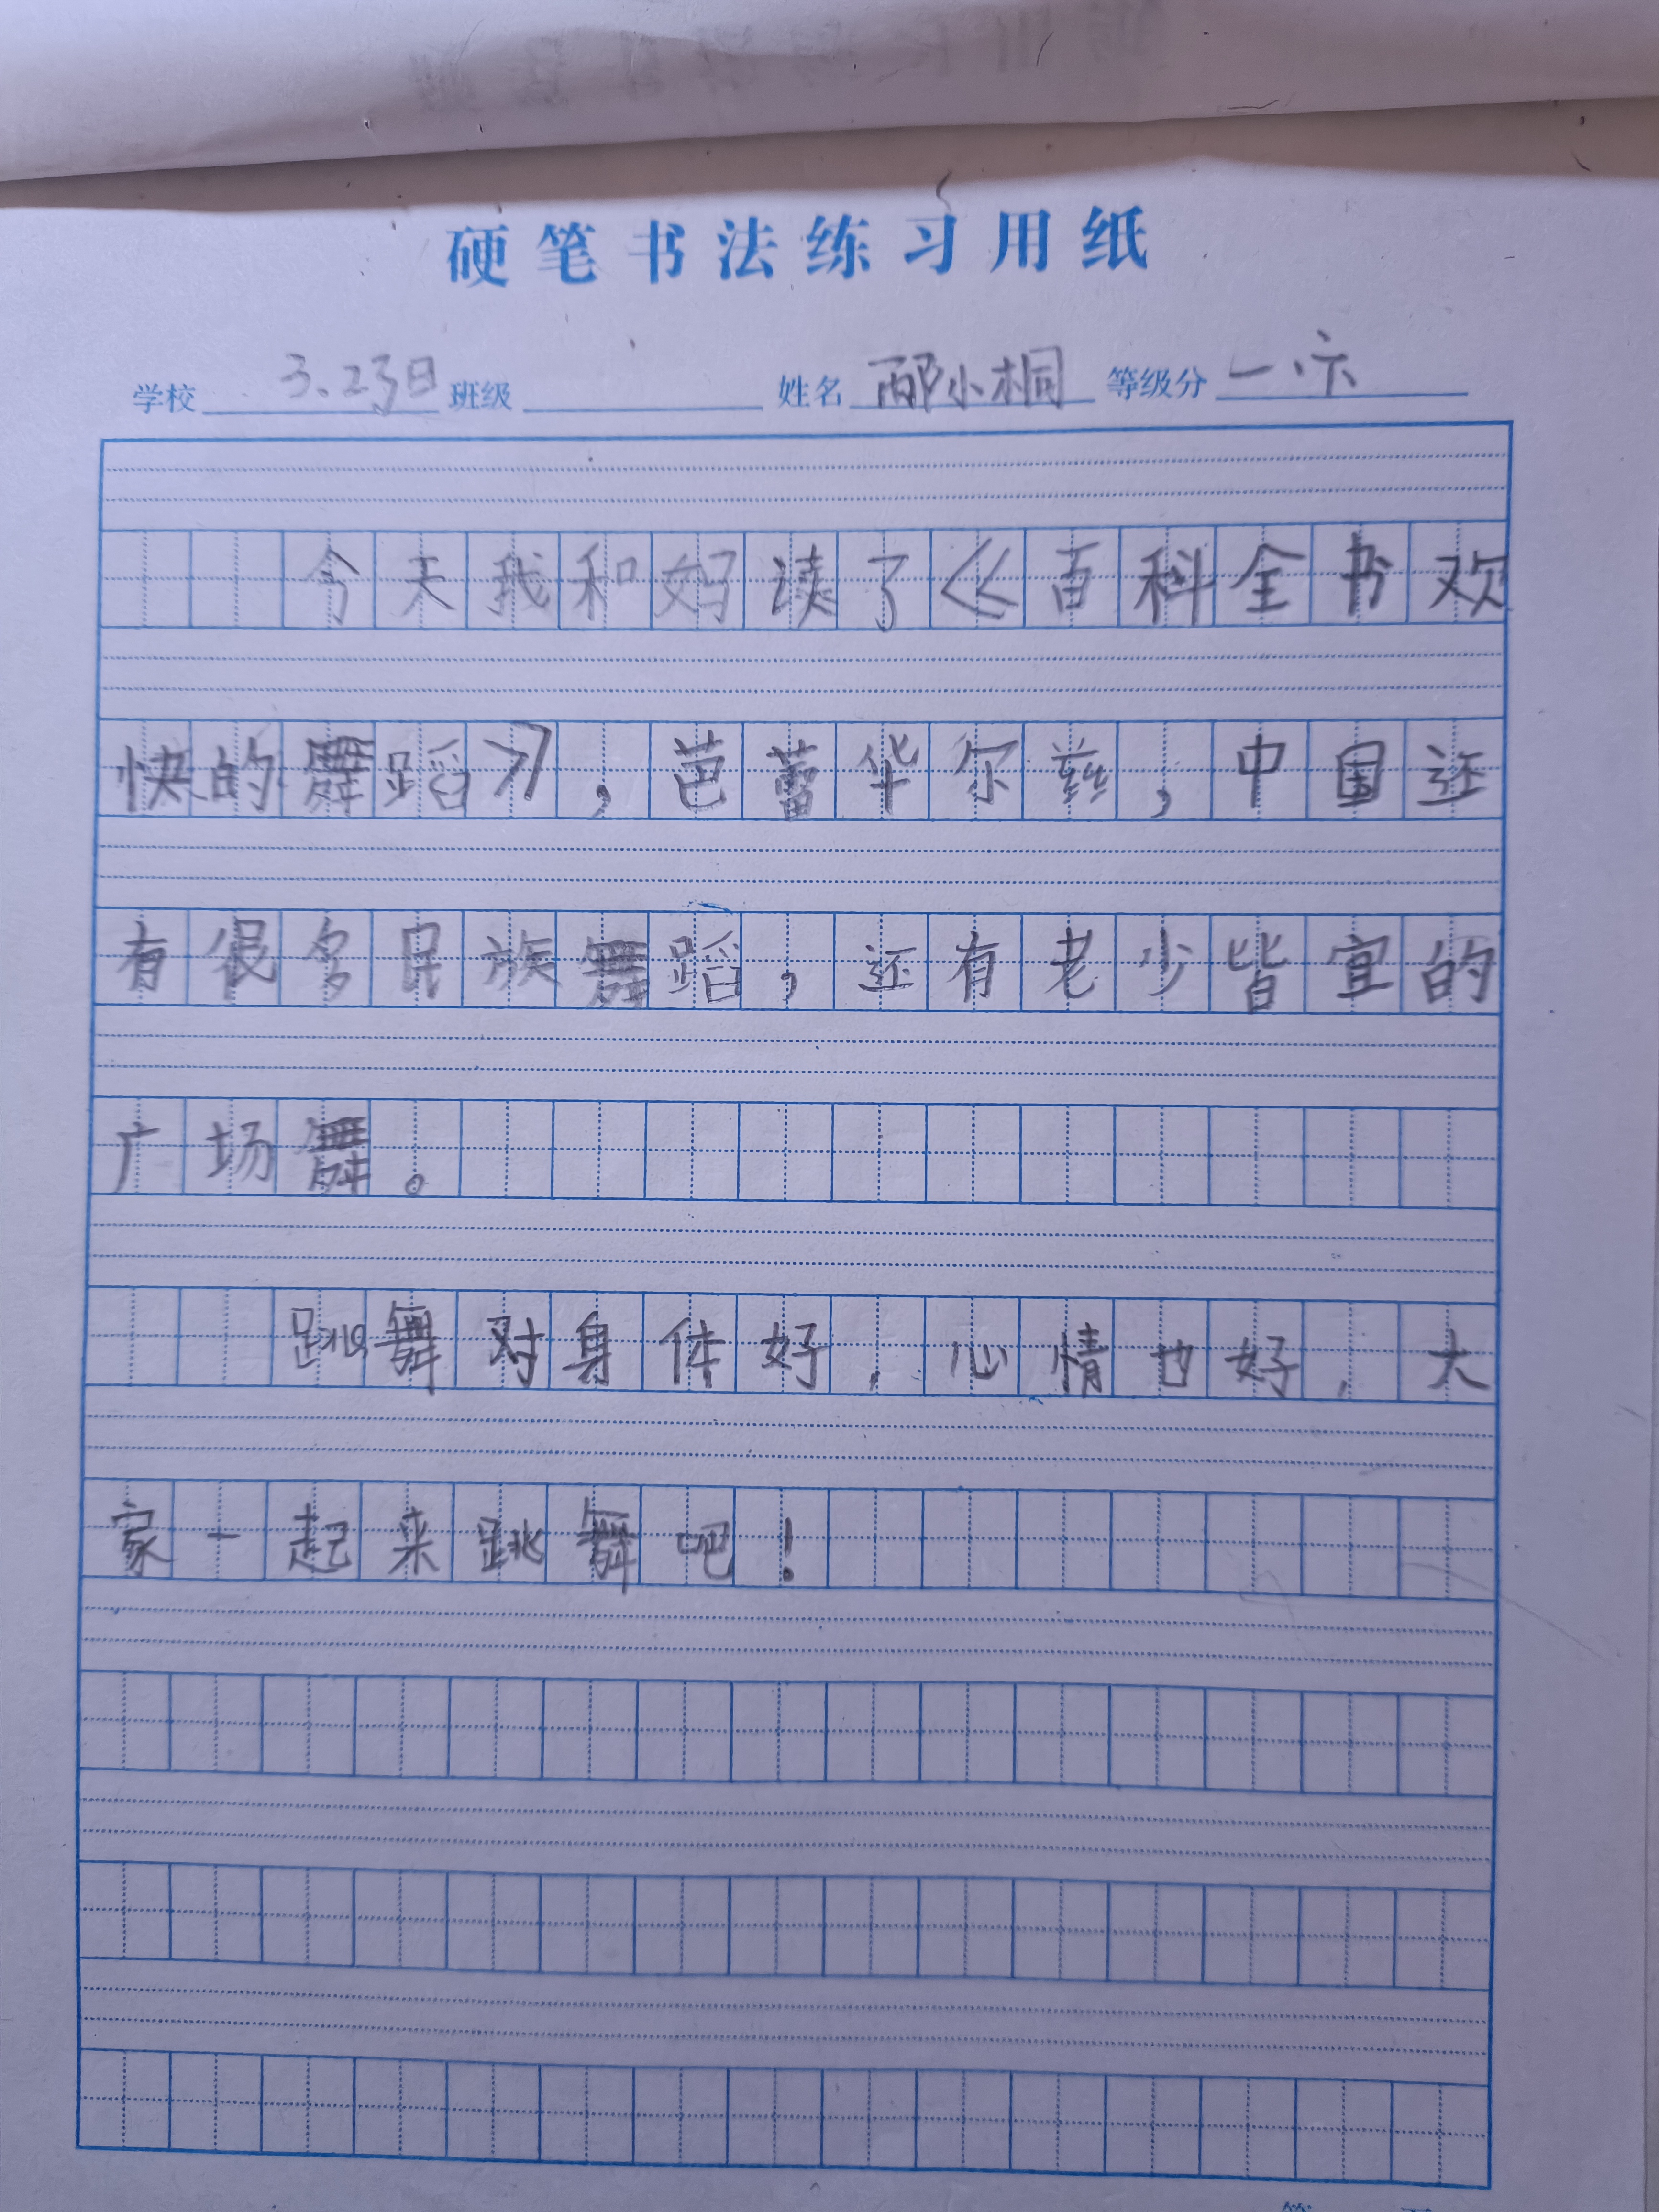 硬笔书法练习用纸
学校 3.23日 班级 姓名 邴小桐 等级分 一.六
今天我和妈读了《百科全书欢
快的舞蹈》，芭蕾华尔兹，中国还
有很多民族舞蹈，还有老少皆宜的
广场舞。
跳舞对身体好，心情也好，大
家一起来跳舞吧！